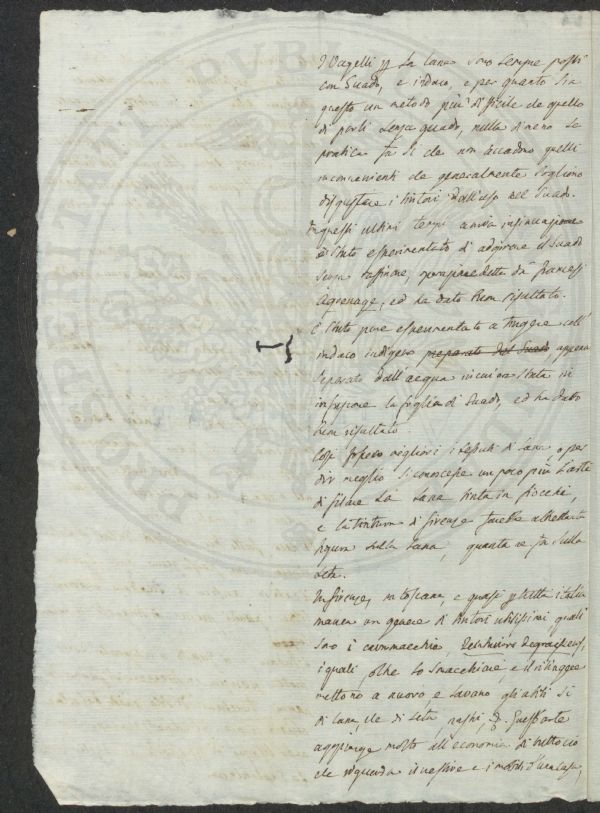 I Vagelli p la lana sono sempre posti
con Guado, e indaco, e per quanto sia
questo un metodo più difficile che quello
di porli senza guado, nulla di meno la
pratica fa sì che non accadono quelli
inconvenienti che generalmente sogliono
disgustare i tintori dall'uso nel Guado.
In questi ultimi tempi a mia insinuazione
è stato esperimentato di adoprare il Guado
senza raffinare, operazione detta da francesi
Agrenage, ed ha dato buon risultato.
È stato pure esperimentato a tingere coll'
indaco indigeno preparato del Guado appena
separato dall'acqua in cui era stata in
infusione la foglia di Guado, ed ha dato
buon risultato.
Così fossero migliori i tessuti di lana, o per
dir meglio si conoscesse un poco più l'arte
di filare la lana tinta in fiocchi,
e la tintura di firenze farebbe altrettanta
figura sulla lana, quanta ne fa sulla
seta.
In firenze, in toscana, e quasi p tutta italia
manca un genere di tintori utilissimi quali
sono i cavamacchia, teinturiers degraisseurs,
i quali, oltre lo smacchiare e il ritingere
mettono a nuovo, e lavano gli abiti sì
di lana, che di seta, &. Quest'arte
aggiunge molto all'economia di tutto ciò
che riguarda il vestire e i mobili d'una casa,